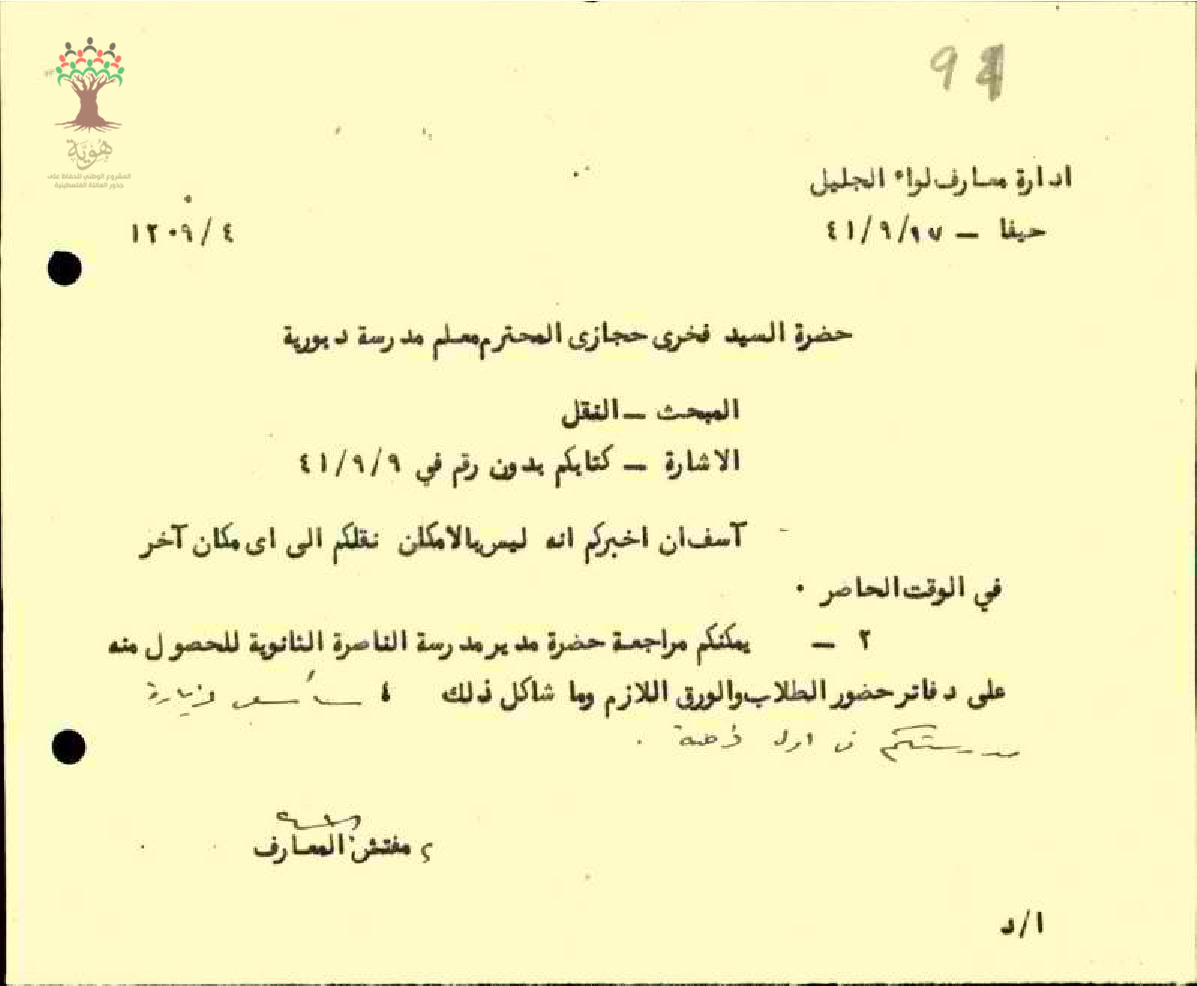 94
هوية
المشروع الوطني للحفاظ على
جذور العائلة الفلسطينية
ادارة معارف لواء الجليل
حيفا — ٤١/٩/١٧
١٢٠٩/٤
حضرة السيد فخرى حجازى المحترم معلم مدرسة دبورية
المبحث — النقل
الاشارة — كتابكم بدون رقم في ٤١/٩/٩
آسف ان اخبركم انه ليس بالامكان نقلكم الى اى مكان آخر
في الوقت الحاضر ٠
٢ — يمكنكم مراجعة حضرة مدير مدرسة الناصرة الثانوية للحصول منه
على دفاتر حضور الطلاب والورق اللازم وما شاكل ذلك ٤ سأسعى لزيارة
مدرستكم في اول فرصة .
مفتش المعارف
ا/د